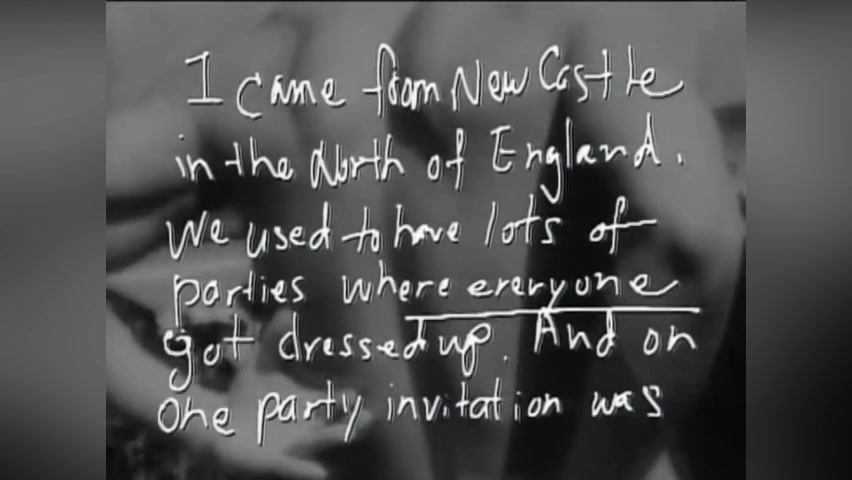 I came from New Castle
in the North of England.
We used to have lots of
parties where everyone
got dressed up. And on
one party invitation was